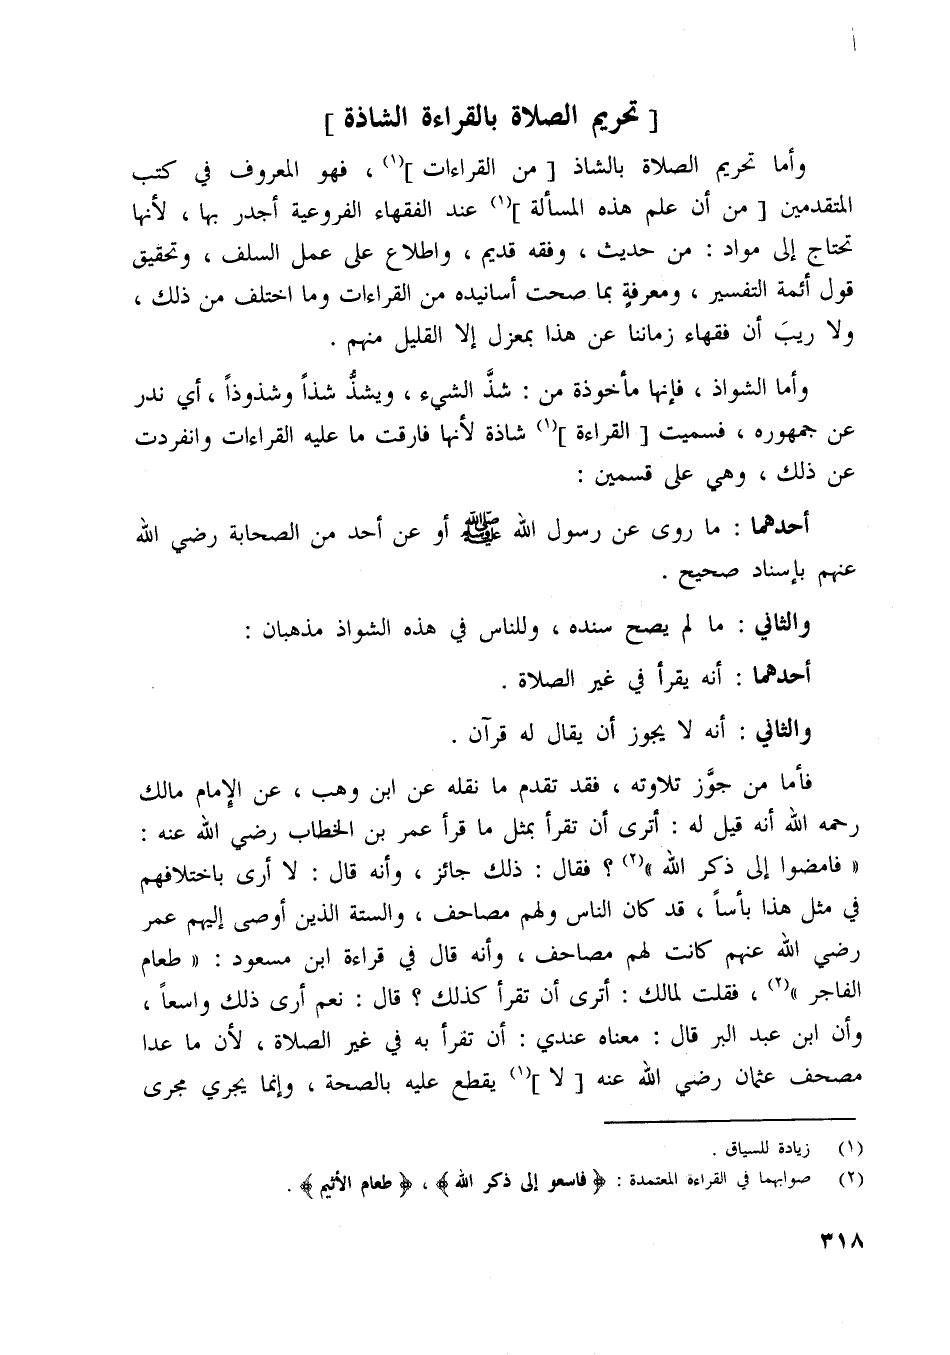 [ تحريم الصلاة بالقراءة الشاذة ]
وأما تحريم الصلاة بالشاذ [ من القراءات ](١) ، فهو المعروف في كتب
المتقدمين [ من أن علم هذه المسألة ](١) عند الفقهاء الفروعية أجدر بها ، لأنها
تحتاج إلى مواد : من حديث ، وفقه قديم ، واطلاع على عمل السلف ، وتحقيق
قول أئمة التفسير ، ومعرفةٍ بما صحت أسانيده من القراءات وما اختلف من ذلك ،
ولا ريبَ أن فقهاء زماننا عن هذا بمعزل إلا القليل منهم .
وأما الشواذ ، فإنها مأخوذة من : شذَّ الشيء ، ويشذُّ شذاً وشذوذاً ، أي ندر
عن جمهوره ، فسميت [ القراءة ](١) شاذة لأنها فارقت ما عليه القراءات وانفردت
عن ذلك ، وهي على قسمين :
أحدهما : ما روى عن رسول الله ﷺ أو عن أحد من الصحابة رضي الله
عنهم بإسناد صحيح .
والثاني : ما لم يصح سنده ، وللناس في هذه الشواذ مذهبان :
أحدهما : أنه يقرأ في غير الصلاة .
والثاني : أنه لا يجوز أن يقال له قرآن .
فأما من جوَّز تلاوته ، فقد تقدم ما نقله عن ابن وهب ، عن الإمام مالك
رحمه الله أنه قيل له : أترى أن تقرأ بمثل ما قرأ عمر بن الخطاب رضي الله عنه :
« فامضوا إلى ذكر الله »(٢) ؟ فقال : ذلك جائز ، وأنه قال : لا أرى باختلافهم
في مثل هذا بأساً ، قد كان الناس ولهم مصاحف ، والستة الذين أوصى إليهم عمر
رضي الله عنهم كانت لهم مصاحف ، وأنه قال في قراءة ابن مسعود : « طعام
الفاجر »(٢) ، فقلت لمالك : أترى أن تقرأ كذلك ؟ قال : نعم أرى ذلك واسعاً ،
وأن ابن عبد البر قال : معناه عندي : أن تقرأ به في غير الصلاة ، لأن ما عدا
مصحف عثمان رضي الله عنه [ لا ](١) يقطع عليه بالصحة ، وإنما يجري مجرى
(١) زيادة للسياق .
(٢) صوابهما في القراءة المعتمدة : ﴿ فاسعو إلى ذكر الله ﴾ ، ﴿ طعام الأثيم ﴾ .
٣١٨